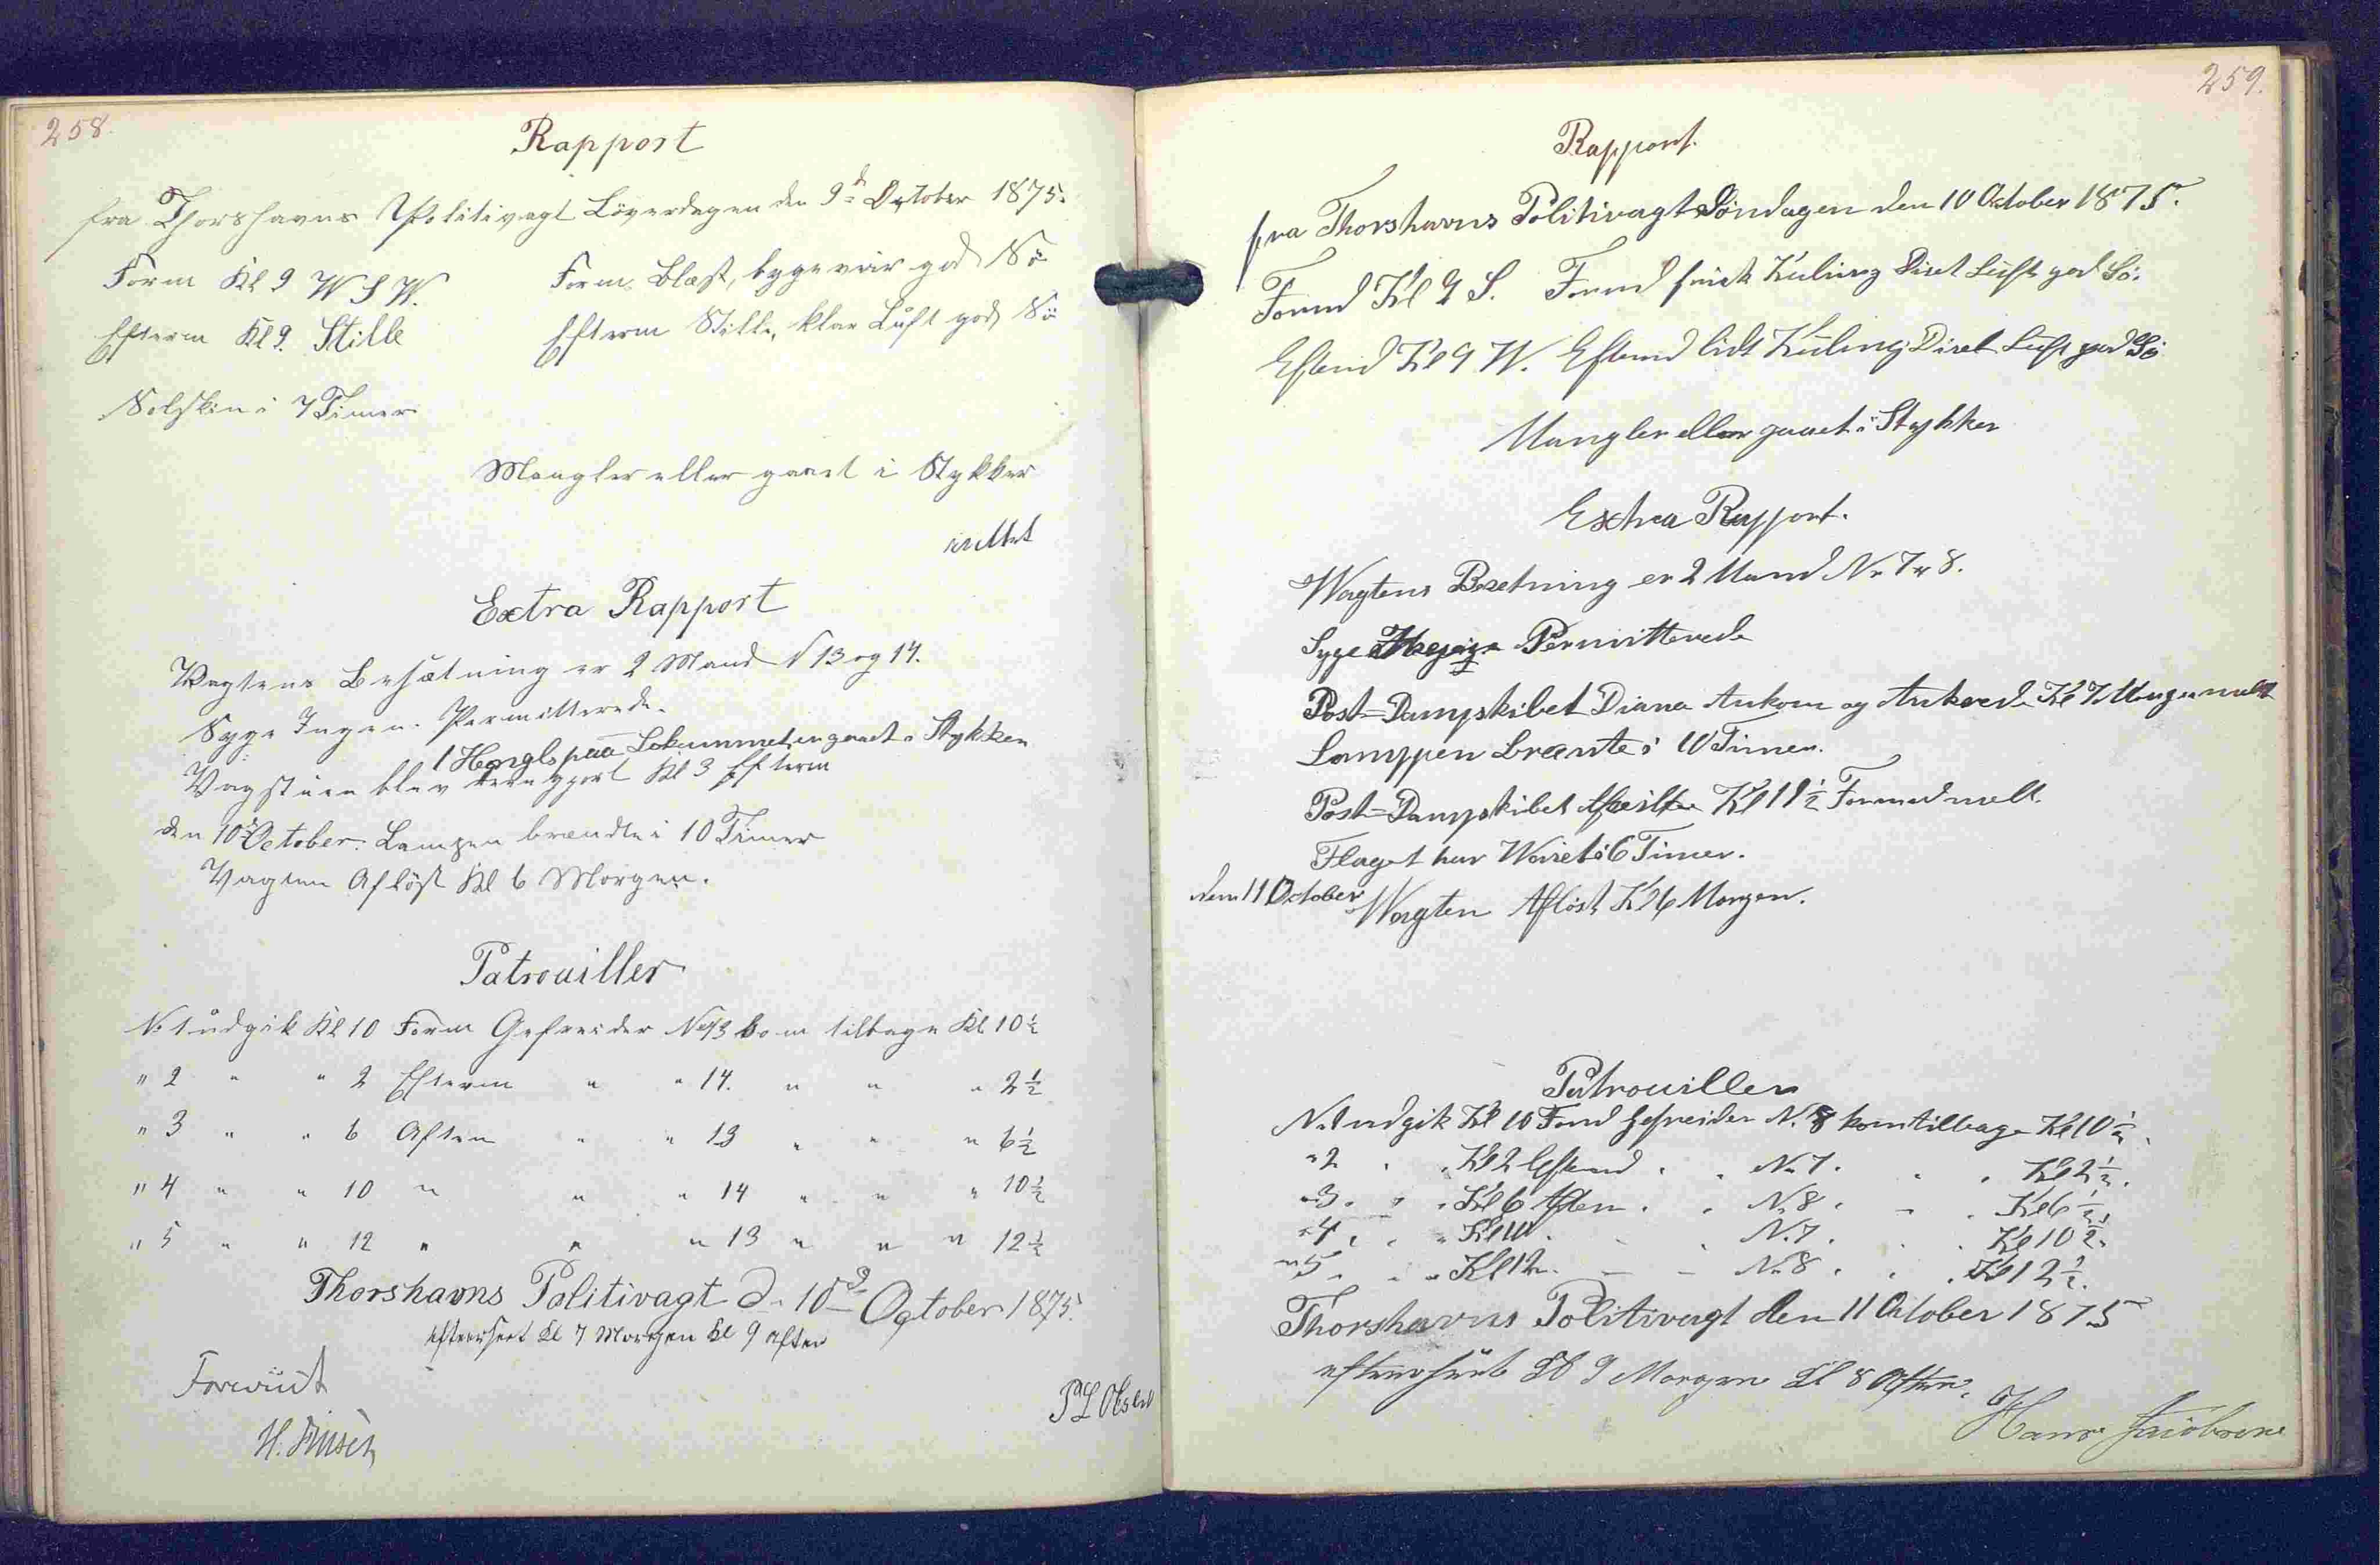 258.
Rapport
fra Thorshavns Politivagt Löverdagen den 9d October 1875.
Form Kl 9 W S W. Form. Blæst, bygevær god Sö
Efterm Kl 9. Stille Efterm Stille, klar Luft god Sö
Solskin i 7 Timer
Mangler eller gaaet i Stykker
intet
Extra Rapport
Vagtens Besætning er 2 Mand N 13 og 14.
Syge Ingen. Permitterede.
1 Hængls paa Lokummet er gaaet i Stykken
Vagstuen blev reengjort Kl 3 Efterm
den 10d October. Lampen brændte i 10 Timer
Vagten Aflöst Kl 6 Morgen.
Patrouiller
No 1 udgik Kl 10 Form Gefreider No 13 kom tilbage Kl 10½
" 2 " " 2 Efterm " " 14. " " " 2½
" 3 " " 6 Aften " " 13 " " " 6½
" 4 " " 10 " " " 14 " " " 10½
" 5 " " 12 " " " 13 " " " 12½
Thorshavns Politivagt d. 10d October 1875.
efterseet Kl 7 Morgen Kl 9 Aften
Foreviist
P L Olsen
H.
259.
Rapport.
fra Thorshavns Politivagt Söndagen den 10 October 1875.
Formd Kl 9 S. Formd frisk Kuling Diset Luft god Sö.
Eftemd Kl 9 W. Eftemd lidt Kuling Diset Luft god Sö
Mangler eller gaaet i Stykker
Extra Rapport.
Wagtens Besetning er 2 Mand Nr 7 & 8.
Syge Permitterede
Post=Dampskibet Diana Ankom og Ankrede Kl 7 Morgen melt
Lamppen Brænte i 10 Timer.
Post=Dampskibet Afseilte Kl 11½ Formd melt.
Flaget har Wæiet i 6 Timer.
den 11 October Wagten Aflöst Kl 6 Morgen.
Patrouiller
N. 1 udgik Kl 10 Formd Gefreider N. 8 kom tilbage Kl 10½.
" 2 " " Kl 2 Eftemd " " N. 7. " " Kl 2½.
" 3 " " Kl 6 Aften " " N. 8 " " Kl 6½.
" 4 " " Kl 10 " " N. 7. " " Kl 10½.
" 5 " " Kl 12 " " N. 8 " " Kl 12½.
Thorshavns Politivagt den 11 October 1875
efterseet Kl 9 Morgen Kl 8 Aften.
Hans Jacobsen